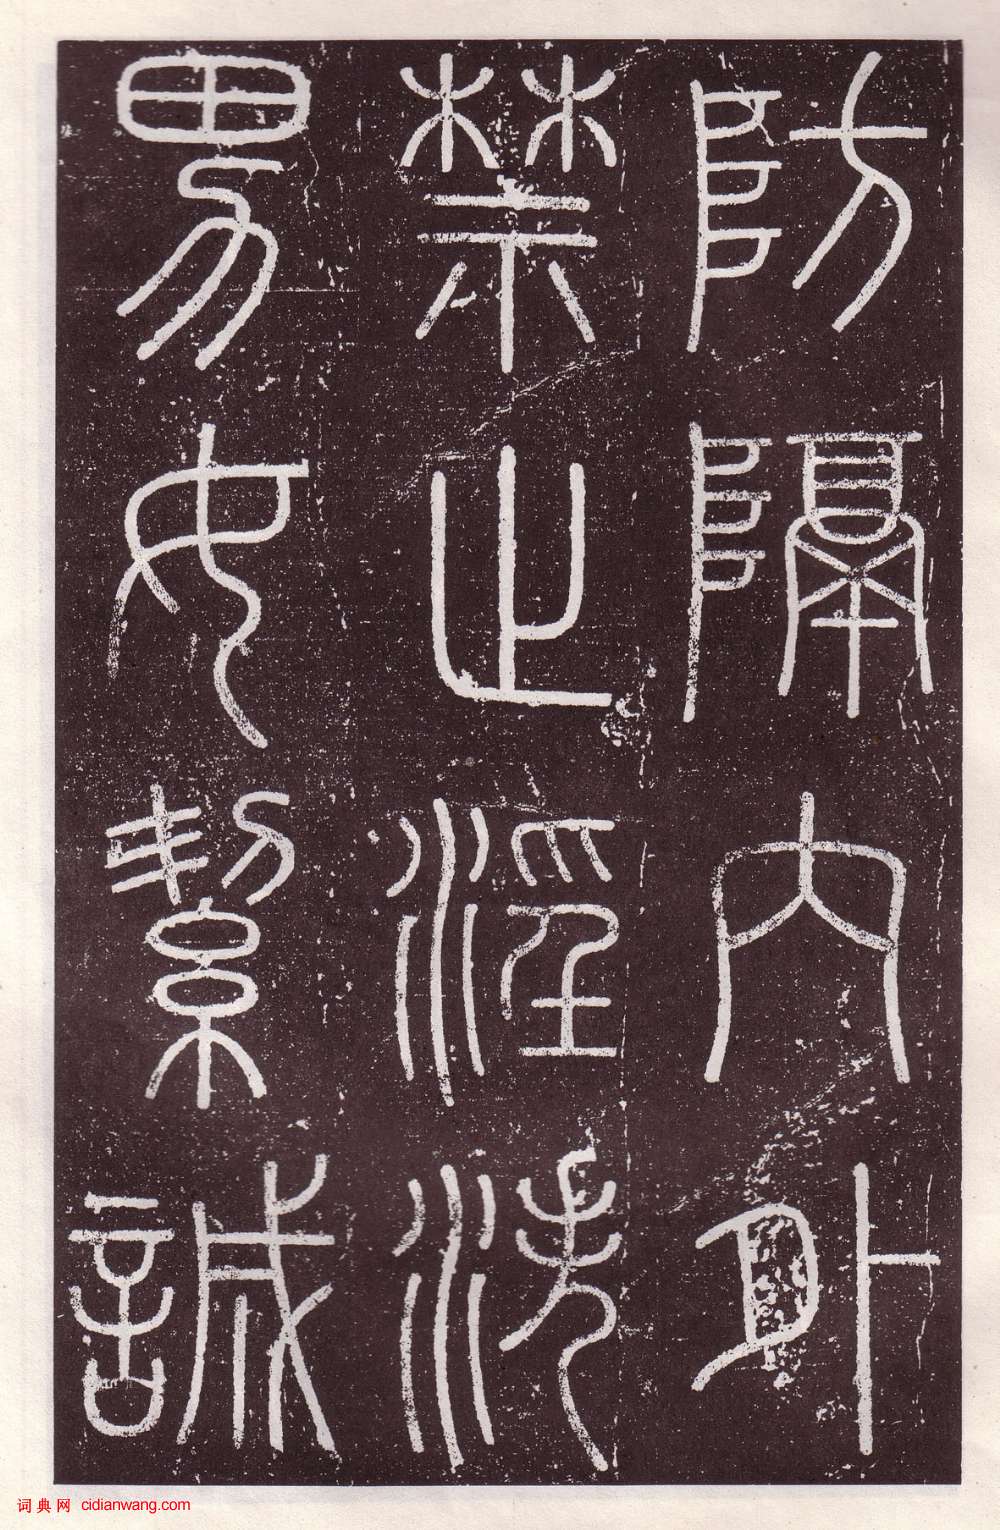 防隔内外
禁止淫泆
男女絜誠
词典网 cidianwang.com